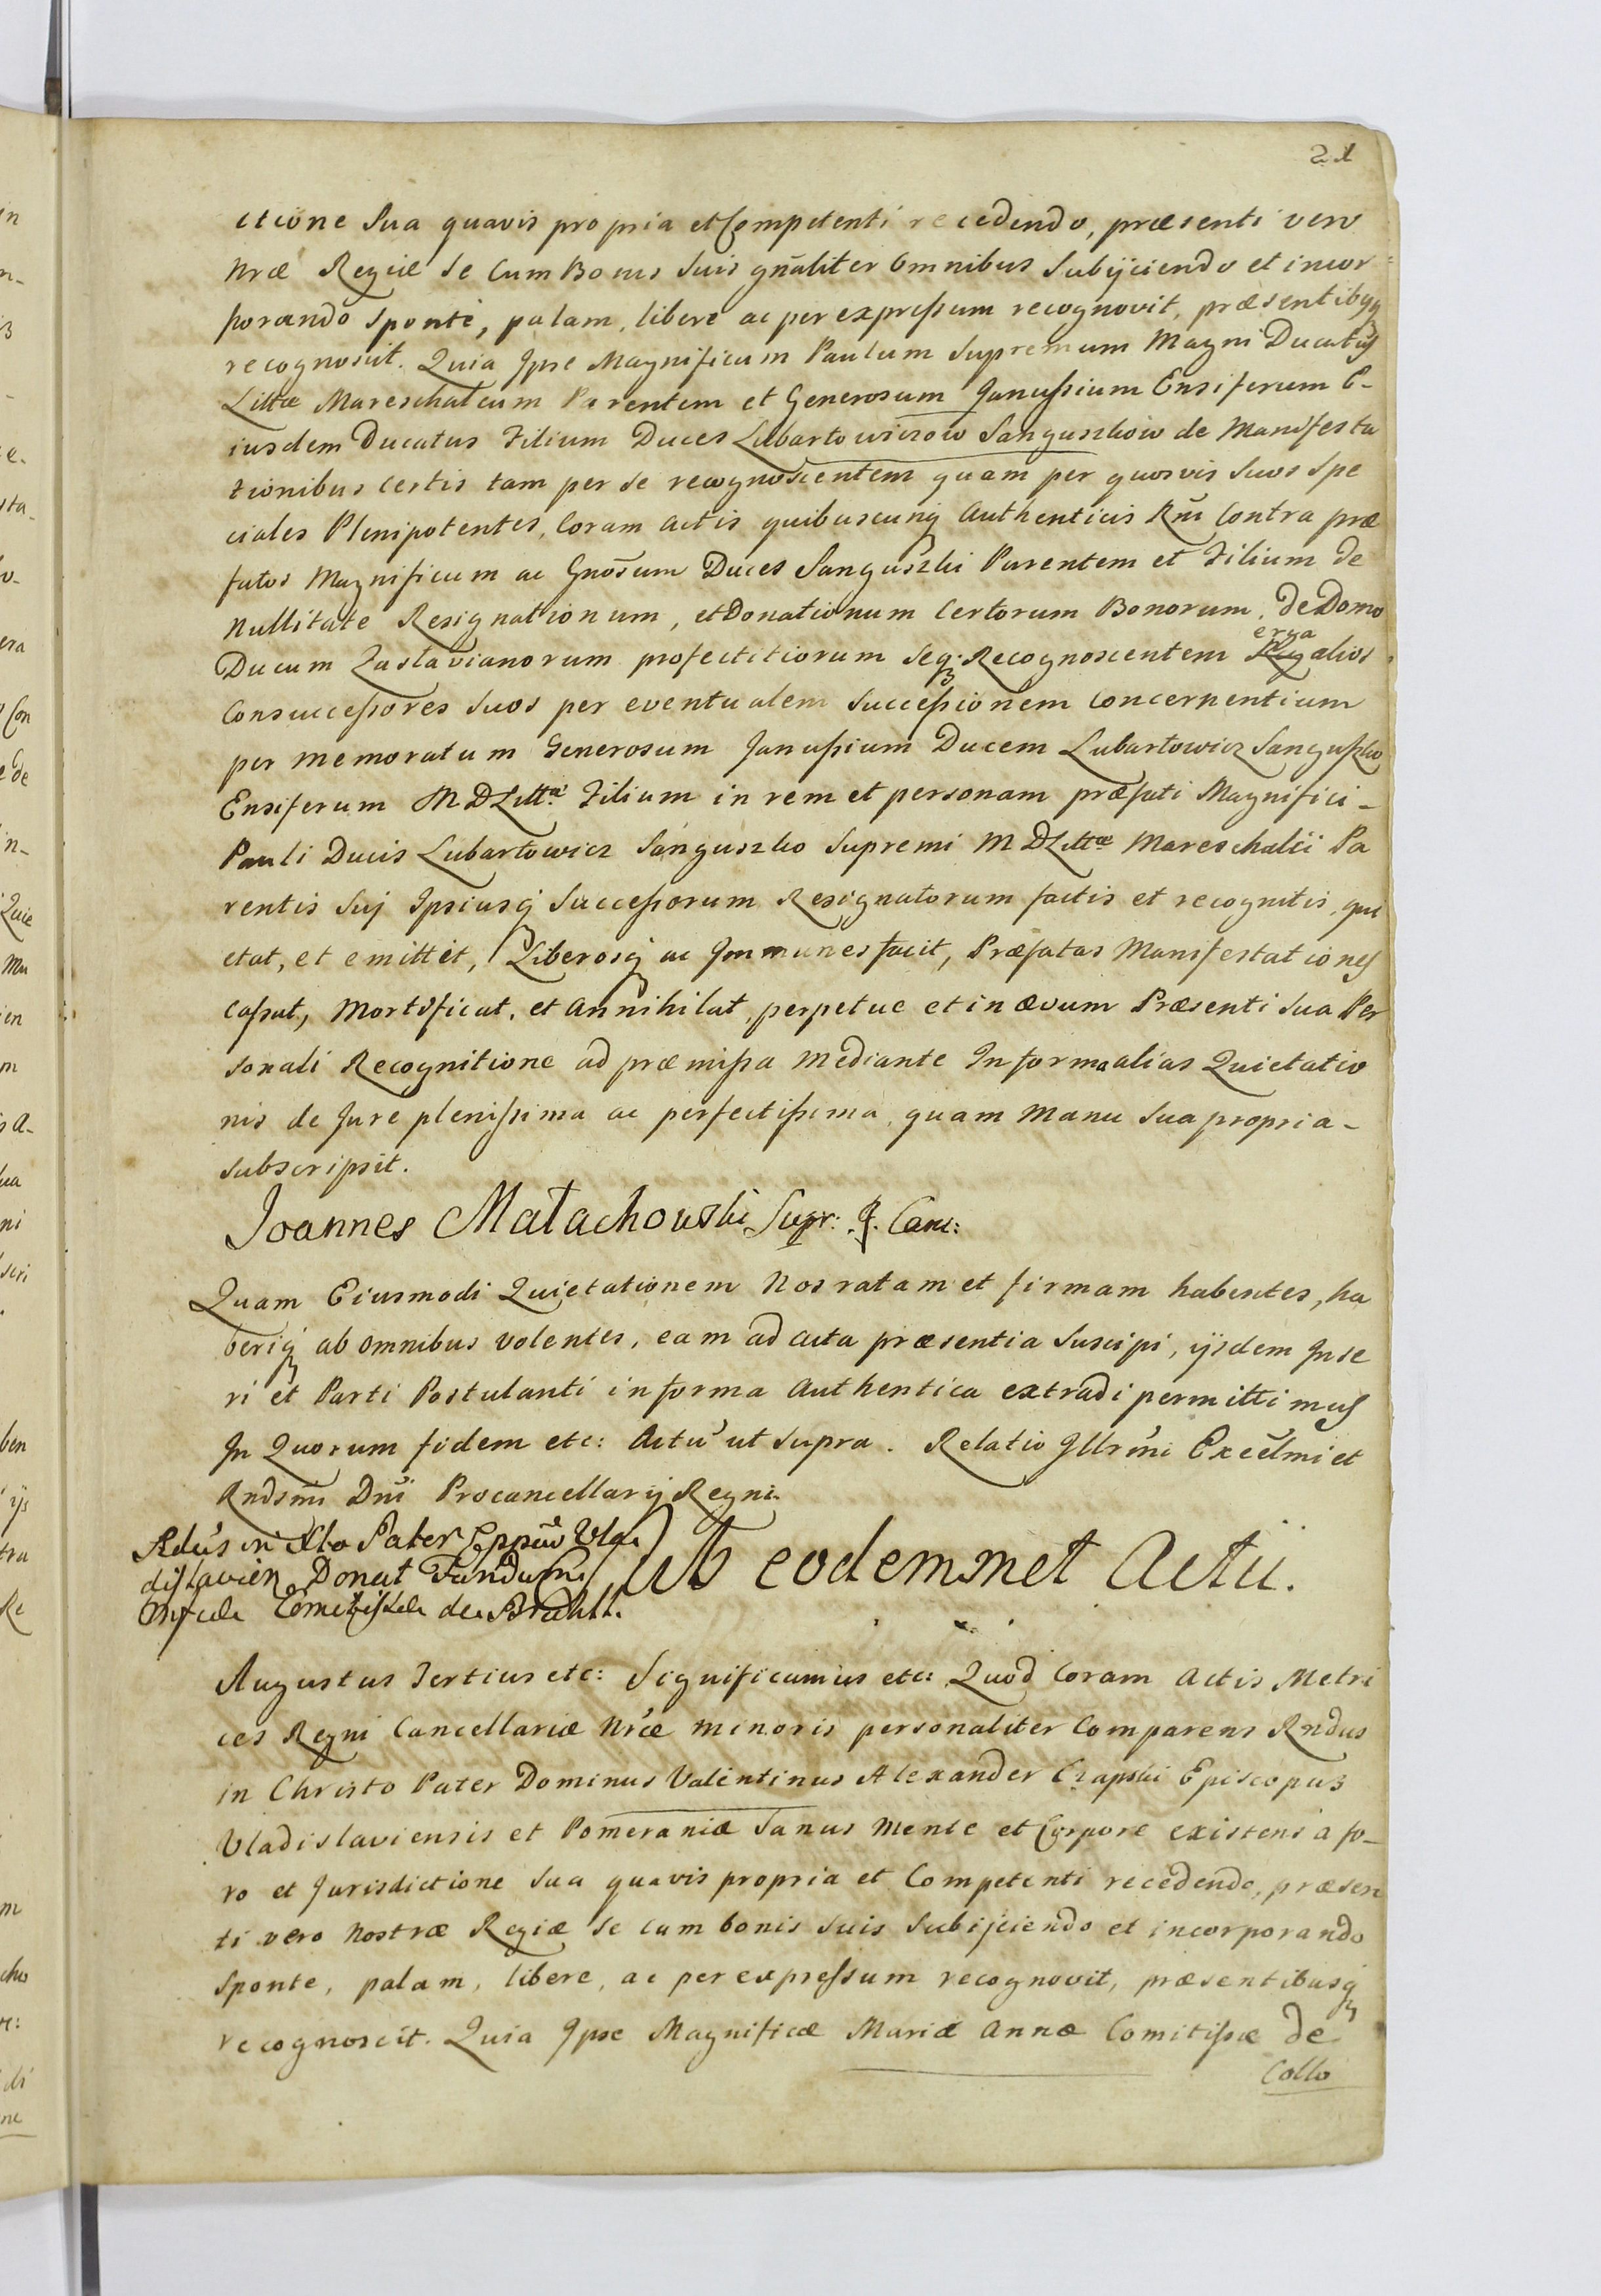 21
ctione sua quavis propria et Competenti recedendo, præsenti vero
Nræ Regiæ se cum Bonis suis gñaliter omnibus subijciendo et incor-
porando sponte, palam, libere ac per expressum recognovit, præsentibusq
recognoscit. Quia Ipse Magnificum Paulum Supremum Magni Ducatus
Littæ Mareschalcum Parentem et Generosum Janussium Ensiferum E-
iusdem Ducatus Filium Duces Lubartowiczow Sanguszkow de Manifesta
tionibus certis tam per se recognoscentem quam per quosvis suos spe
ciales Plenipotentes, Coram actis quibuscunq Authenticis Rñi Contra præ
fatos Magnificum ac Gnõsum Duces Sanguszki Parentem et Filium de
Nullitate Resignationum, et Donationum certorum Bonorum, de Domo
Ducum Zaslavianorum profectitiorum seq. Recognoscentem erga alios
Consuccessores suos per eventualem successionem concernentium
per memoratum Generosum Janussium Ducem Lubartowicz Sanguszko
Ensiferum M D Littæ Filium in rem et personam præfati Magnifici-
Pauli Ducis Lubartowicz Sanguszko Supremi M D Littæ Mareschalci Pa
rentis Suj Ipsiusq Successorum Resignatorum factis et recognitis, qui
etat, et emittit, Liberosq ac Immunes facit, Præfatas Manifestationes
cassat, Mortificat, et Annihilat, perpetue et in ævum Præsenti sua Per
sonali Recognitione ad præmissa mediante In forma alias Quietatio
nis de Jure plenissima ac perfectissima, quam Manu sua propria-
subscripsit.
Joannes Małachowski Supr: R. Canc:
Quam Eiusmodi Quietationem Nos ratam et firmam habentes, ha
beriq ab omnibus volentes, eam ad acta præsentia suscipi, ijsdem Inse
ri et Parti Postulanti in forma Authentica extradi permittimus
In Quorum fidem etc: Actũ ut supra. Relatio Illrmi Excelmi et
Rndsmi Dñi Procancellarij Regni.
Rdus in Xto Pater Eppus Vla
dislavien Donat
Comitissæ de Brühll.
Ab eodemmet Actu.
Augustus Tertius etc: Significamus etc: Quod Coram Actis Metri
ces Regni Cancellariæ Nræ minoris personaliter Comparens Rndus
in Christo Pater Dominus Valentinus Alexander Czapski Episcopus
Vladislaviensis et Pomeraniæ Sanus Mente et Corpore existens a fo-
ro et Jurisdictione sua quavis propria et Competenti recedendo, præsen
ti vero Nostræ Regiæ se cum bonis suis subijciendo et incorporando
sponte, palam, libere, ac per expressum recognovit, præsentibusq
recognoscit. Quia Ipse Magnificæ Mariæ Annæ Comitissæ de
Collo